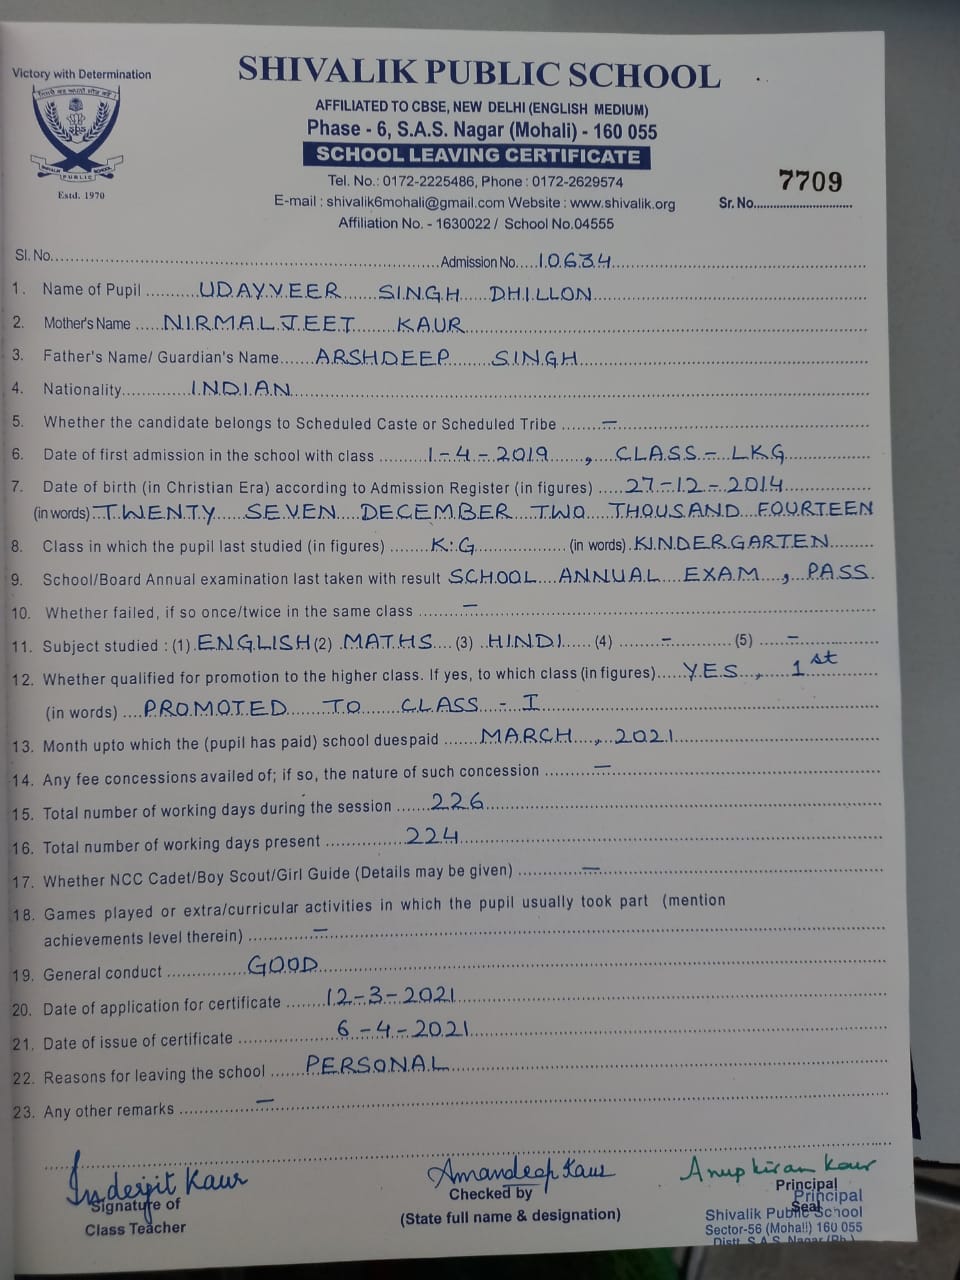 Victory with Determination
SHIVALIK PUBLIC SCHOOL
AFFILIATED TO CBSE, NEW DELHI (ENGLISH MEDIUM)
Phase - 6, S.A.S. Nagar (Mohali) - 160 055
SCHOOL LEAVING CERTIFICATE
SPS
SHIVALIK PUBLIC SCHOOL
Estd. 1970
Tel. No.: 0172-2225486, Phone : 0172-2629574
7709
E-mail : shivalik6mohali@gmail.com Website : www.shivalik.org
Sr. No.
Affiliation No. - 1630022 / School No.04555
Sl. No. Admission No. 10634
1. Name of Pupil UDAYVEER SINGH DHILLON
2. Mother's Name NIRMALJEET KAUR
3. Father's Name/ Guardian's Name ARSHDEEP SINGH
4. Nationality INDIAN
5. Whether the candidate belongs to Scheduled Caste or Scheduled Tribe —
6. Date of first admission in the school with class 1-4-2019, CLASS - LKG
7. Date of birth (in Christian Era) according to Admission Register (in figures) 27-12-2014
(in words) TWENTY SEVEN DECEMBER TWO THOUSAND FOURTEEN
8. Class in which the pupil last studied (in figures) K.G (in words) KINDERGARTEN
9. School/Board Annual examination last taken with result SCHOOL ANNUAL EXAM, PASS
10. Whether failed, if so once/twice in the same class —
11. Subject studied : (1) ENGLISH (2) MATHS (3) HINDI (4) - (5) -
12. Whether qualified for promotion to the higher class. If yes, to which class (in figures) YES, 1st
(in words) PROMOTED TO CLASS - I
13. Month upto which the (pupil has paid) school duespaid MARCH, 2021
14. Any fee concessions availed of; if so, the nature of such concession —
15. Total number of working days during the session 226
16. Total number of working days present 224
17. Whether NCC Cadet/Boy Scout/Girl Guide (Details may be given) —
18. Games played or extra/curricular activities in which the pupil usually took part (mention
achievements level therein) —
19. General conduct GOOD
20. Date of application for certificate 12-3-2021
21. Date of issue of certificate 6-4-2021
22. Reasons for leaving the school PERSONAL
23. Any other remarks —
Inderjit Kaur Amandeep Kaur Anupkiran Kaur
Signature of Checked by Principal
Class Teacher (State full name & designation) Seal
Principal
Shivalik Public School
Sector-56 (Mohali) 160 055
Distt. S.A.S. Nagar (Pb.)